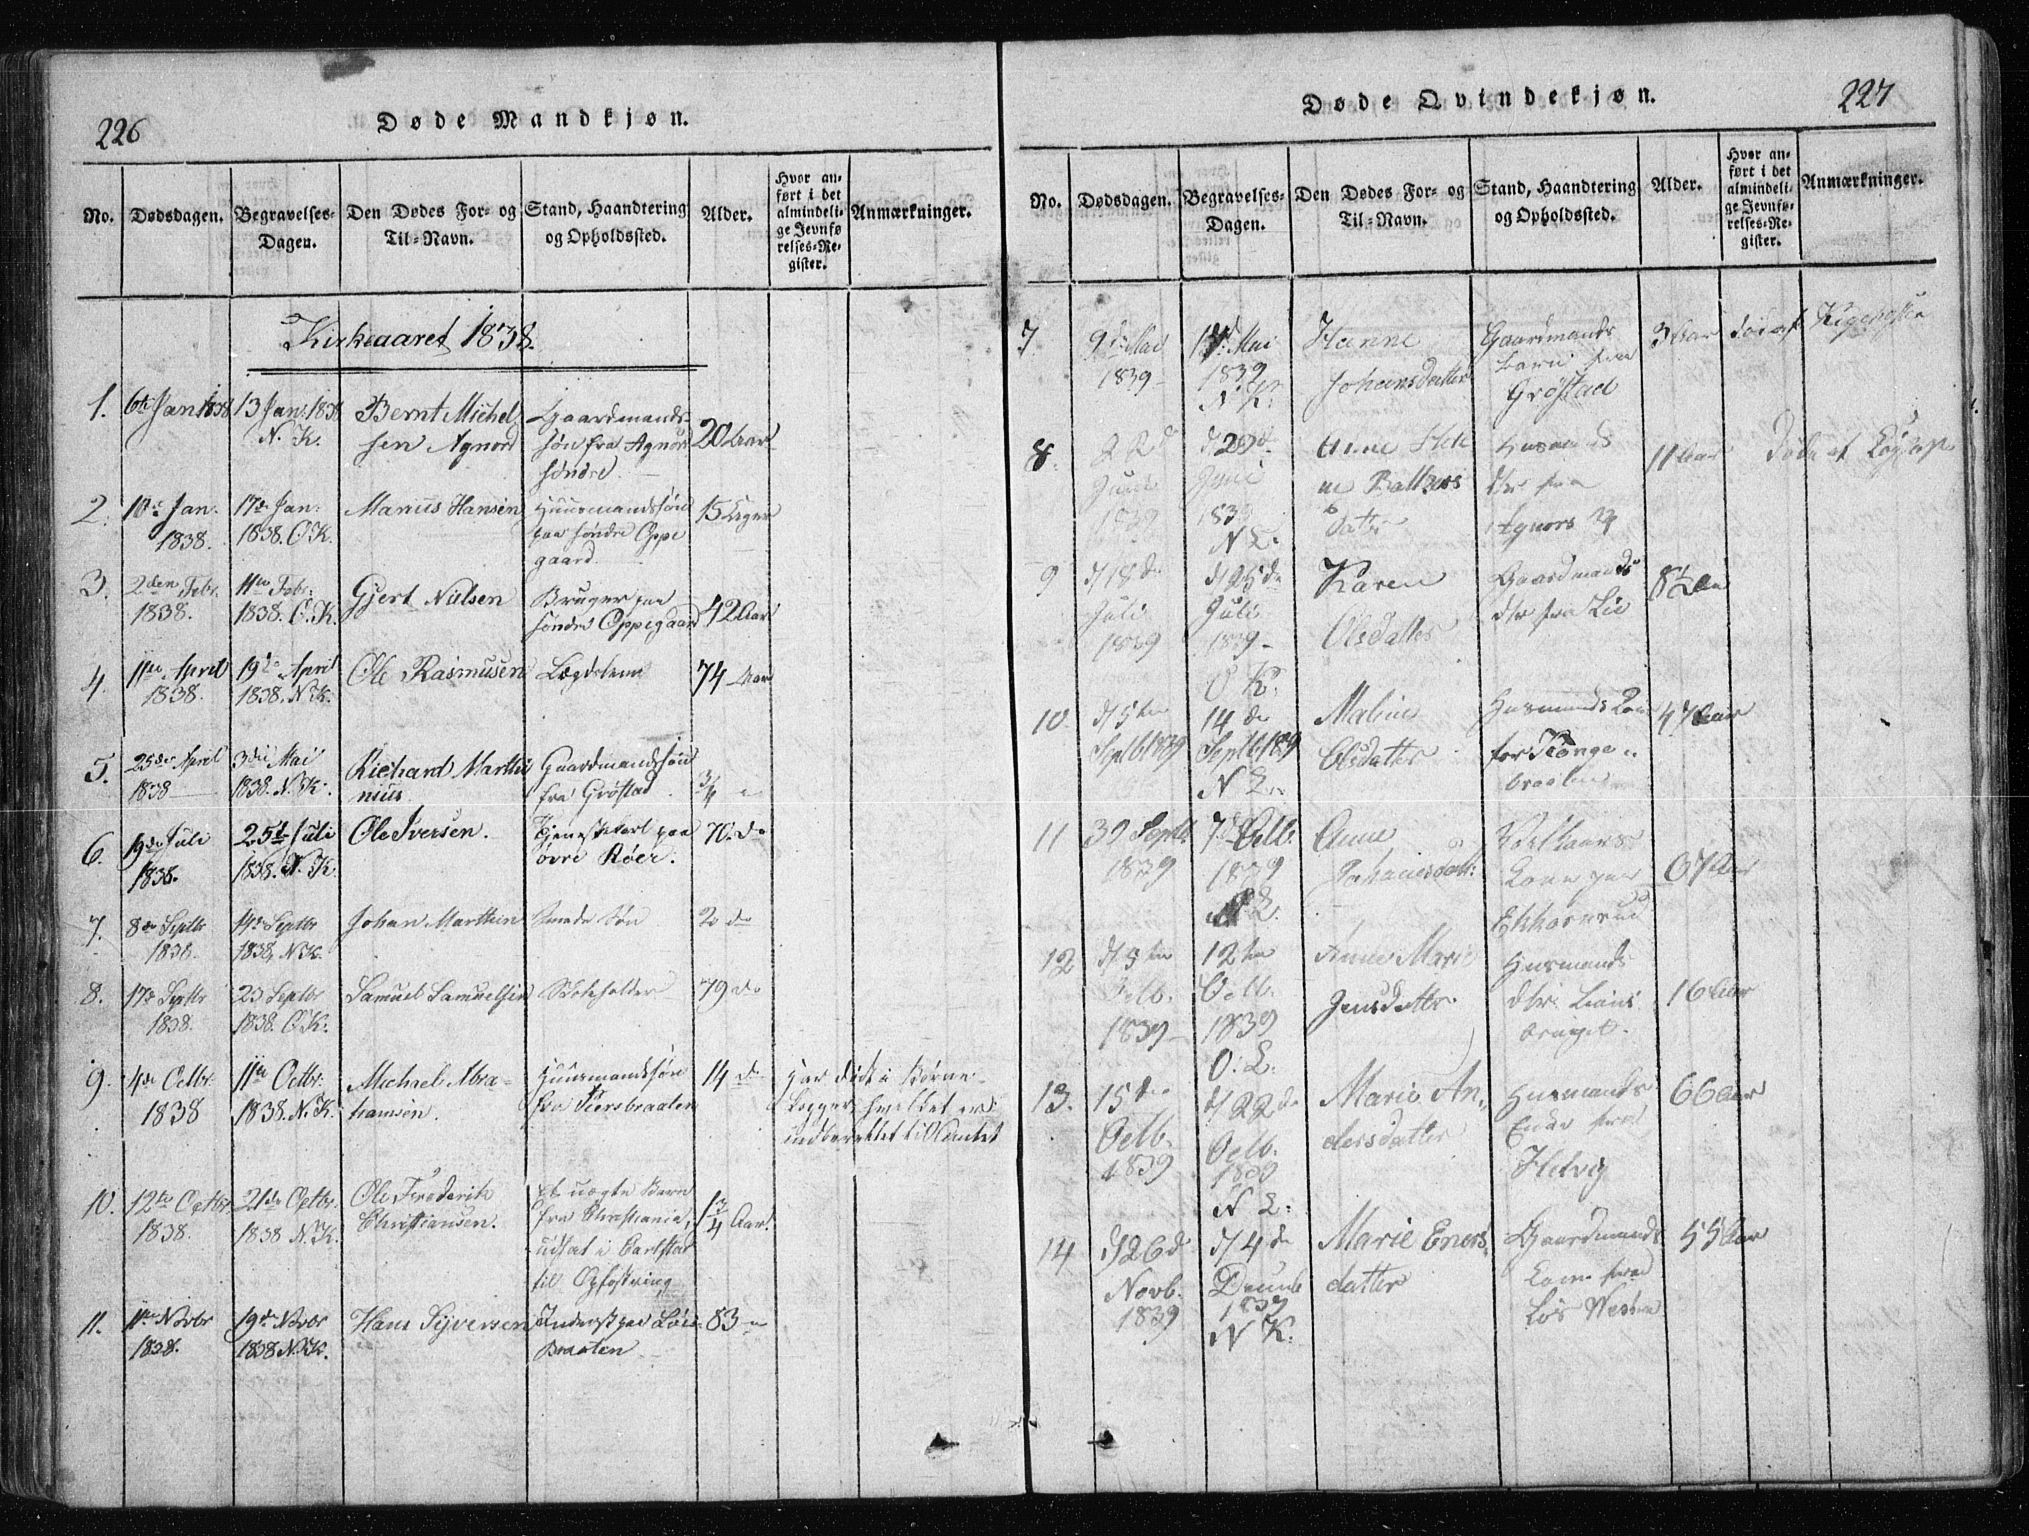 226
Døde Mandkjøn.
No.
Dødsdagen.
Begravelses-
Dagen.
Den Dødes For- og
Til-Navn.
Stand, Haandtering
og Opholdssted.
Alder.
Hvor an-
ført i det
almindeli-
ge Jevnfø
relses-Re-
gister.
Anmærkninger.
Kirkeaaret 1838.
1.
6te Jan 1838
13 Jan. 1838
N. K.
Bernt Michel
sen Agnord
Gaardmands
søn fra Agnor
søndre.
20 Aar
2.
10de Jan.
1838.
17de Jan:
1838. O K.
Marius Hansen
Huusmandssøn
paa søndre Oppe
gaard
15 Uger
3.
2den Febr.
1838.
11te Febr.
1838. O. K.
Gjert Nielsen
Bruger paa
søndre Oppegaard
42 Aar
4.
11te April
1838.
19de April
1838. N. K.
Ole Rasmusen
Lægdslem
74 Aar
5.
25de April
1838
3die Mai
1838. N. K.
Richard Marthi
nius
Gaardmandssøn
fra Grøstad
3/4 "
6.
19de Juli
1838.
25de Juli
1838. N. K.
Ole Iversen.
Tjenestekarl paa
øvre Røer.
70 do
7.
8de Septbr
1838.
14de Septbr
1838, N. K.
Johan Marthin
Smeds Søn
2 do
8.
17de Septbr
1838.
23 Septbr
1838. O K.
Samuel Samuelsen
Skoleholder
79 do
9.
4de Octbr.
1838
11te Octbr.
1838. N. K.
Michael Abra-
hamsen.
Huusmandssøn
fra Fiersbraaten
14 do
Har dødt i Børne-
kopper, hvilket er
indberettet til Amtet
10.
12te Octbr.
1838.
21de Octbr.
1838 N. K.
Ole Frederik
Christiansen.
Et uægte Barn
fra Christiania,
udsat i
til Opfostring
1 3/4 Aar.
11.
11te Novbr
1838.
19de Novbr
1838 N. K.
Hans Syversen
Inderst paa Løs
Braaten
83 "
227
Døde Qvindekjøn.
No.
Dødsdagen.
Begravelses-
Dagen.
Den Dødes For- og
Til-Navn.
Stand, Haandtering
og Opholdssted.
Alder.
Hvor an-
ført i det
almindeli-
ge Jevnfø-
relses-Re-
gister.
Anmærkninger.
7
9de Mai
1839
Mai
1839
N K:
Hanne
Johansdatter
Gaardmands
barn fra
Grøstad
3 Aar
død af
8.
22d
Juni
1839
d 29de
Juni
1839
N K.
Anne
datter
Husmands
dtr fra
Agnors
11 Aar
Døde af
9
d 18de
Juli
1839
d 25de
Juli
1839
O K.
Karen
Olsdatter
Gaardmands
dtr fra Lie
8 1/2
10
d 5te
Septb 1839
14de
Septb 1839
N K.
Maline
Olsdatter
Husmands Kone
for Konge-
braaten
47 Aar
11
Septb.
1839
7de Octb.
1839
N K.
Anne
Johannesdatt:
Kone paa
67 Aar
12
d 5te
Octb.
1839
12te
Octb.
1839
O. K.
Anne Marie
Jensdatter
Husmands
dtr.
16 Aar
13.
15de
Octb.
1839
d 22de
Octb.
1839
N K:
Marie An-
dersdatter
Husmands
Enke fra
Helvig
66 Aar
14
d 26d
Novb.
1839
d 4de
Decemb
1839
N K.
Marie Eners
datter
Gaardmands
Kone fra
Løs Westre
55 Aar